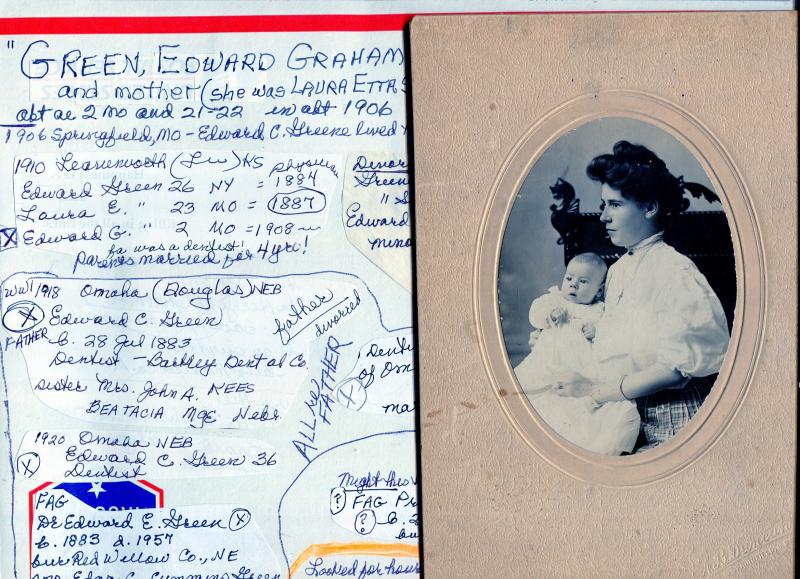 " GREEN, EDWARD GRAHAM
and mother (she was LAURA ETTA S
abt ae 2 mo and 21-22 in abt 1906
1906 Springfield, MO - Edward C. Greene lived
1910 Leavenworth (Lvn) KS physician
Edward Green 26 NY = 1884
Laura E. " 23 MO = 1887
X Edward G. " 2 MO = 1908
fa was a dentist!
parents married for 4 yr!
Divor
Green
" S
Edward
mino
WWI 1918 Omaha (Douglas) NEB
X Edward C. Green
FATHER b. 28 Jul 1883
Dentist - Barkley Dental Co.
sister Mrs. John A. REES
BEATACIA Mge Nebr.
father divorced
ALL NEW FATHER
Denti
of Om
ma
1920 Omaha NEB
X Edward C. Green 36
Dentist
FAG
Dr Edward E. Green X
b. 1883 d. 1957
bur Red Willow Co., NE
Edgr C. Cummins Green
Might this
? FAG Pr
? b. 2
bu
Looked for hour